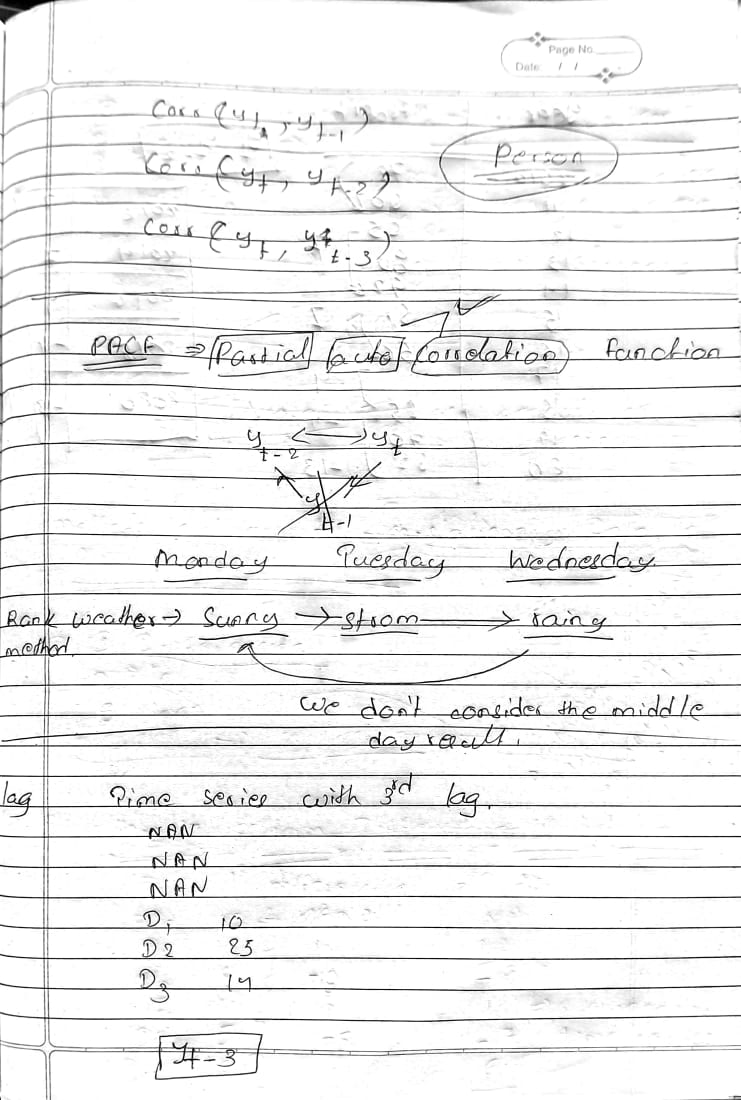 Page No.
Date: / /
Corr (y_t, y_t-1)
Person
Corr (y_t, y_t-2)
Corr (y_t, y_t-3)
PACF ⇒ Partial auto Correlation function
y_t-2 ⟷ y_t
y_t-1
Monday Tuesday Wednesday
Rank method. weather → Sunny → strom → rainy
We don't consider the middle
day result.
lag Time series with 3rd lag.
NAN
NAN
NAN
D1 10
D2 25
D3 14
y_t-3